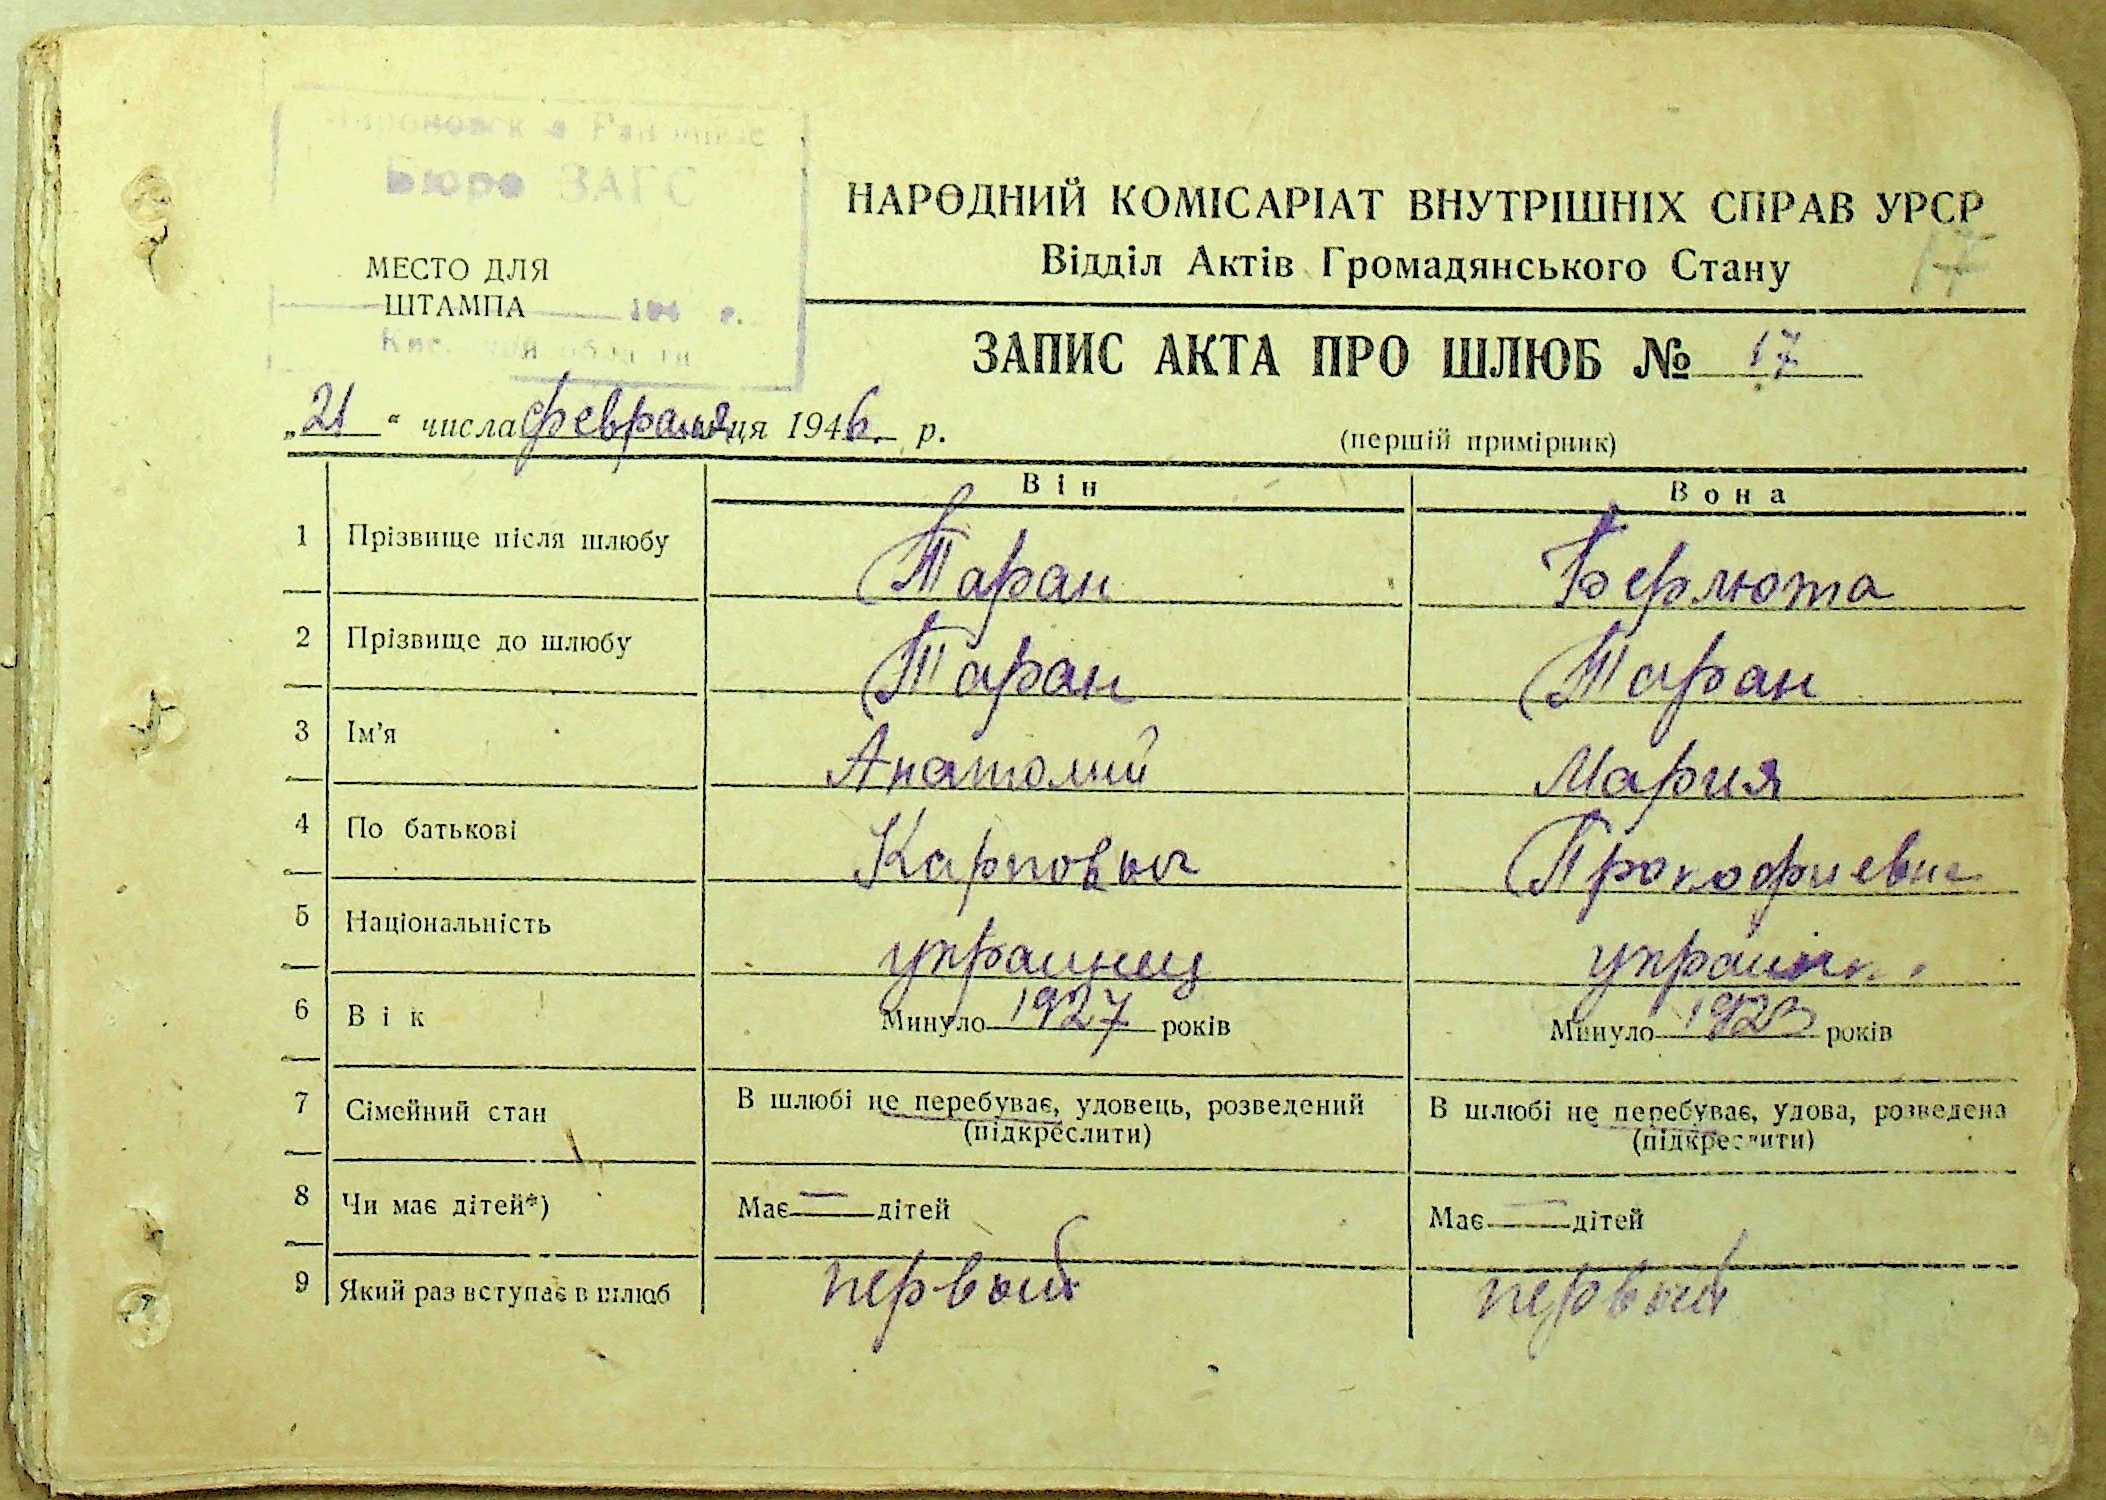 Бюро ЗАГС
МЕСТО ДЛЯ
ШТАМПА 194 г.
НАРОДНИЙ КОМІСАРІАТ ВНУТРІШНІХ СПРАВ УРСР
Відділ Актів Громадянського Стану
17
ЗАПИС АКТА ПРО ШЛЮБ № 17
„21“ числа февраля ця 1946. р.
(перший примірник)
Він Вона
1 Прізвище після шлюбу Таран Берлюта
2 Прізвище до шлюбу Таран Таран
3 Ім'я Анатолий Мария
4 По батькові Карпович Прокофиевна
5 Національність украинец
6 Вік Минуло 1927 років Минуло 1923 років
7 Сімейний стан В шлюбі не перебуває, удовець, розведений В шлюбі не перебуває, удова, розведена
(підкреслити) (підкреслити)
8 Чи має дітей*) Має — дітей Має — дітей
9 Який раз вступає в шлюб первый первый